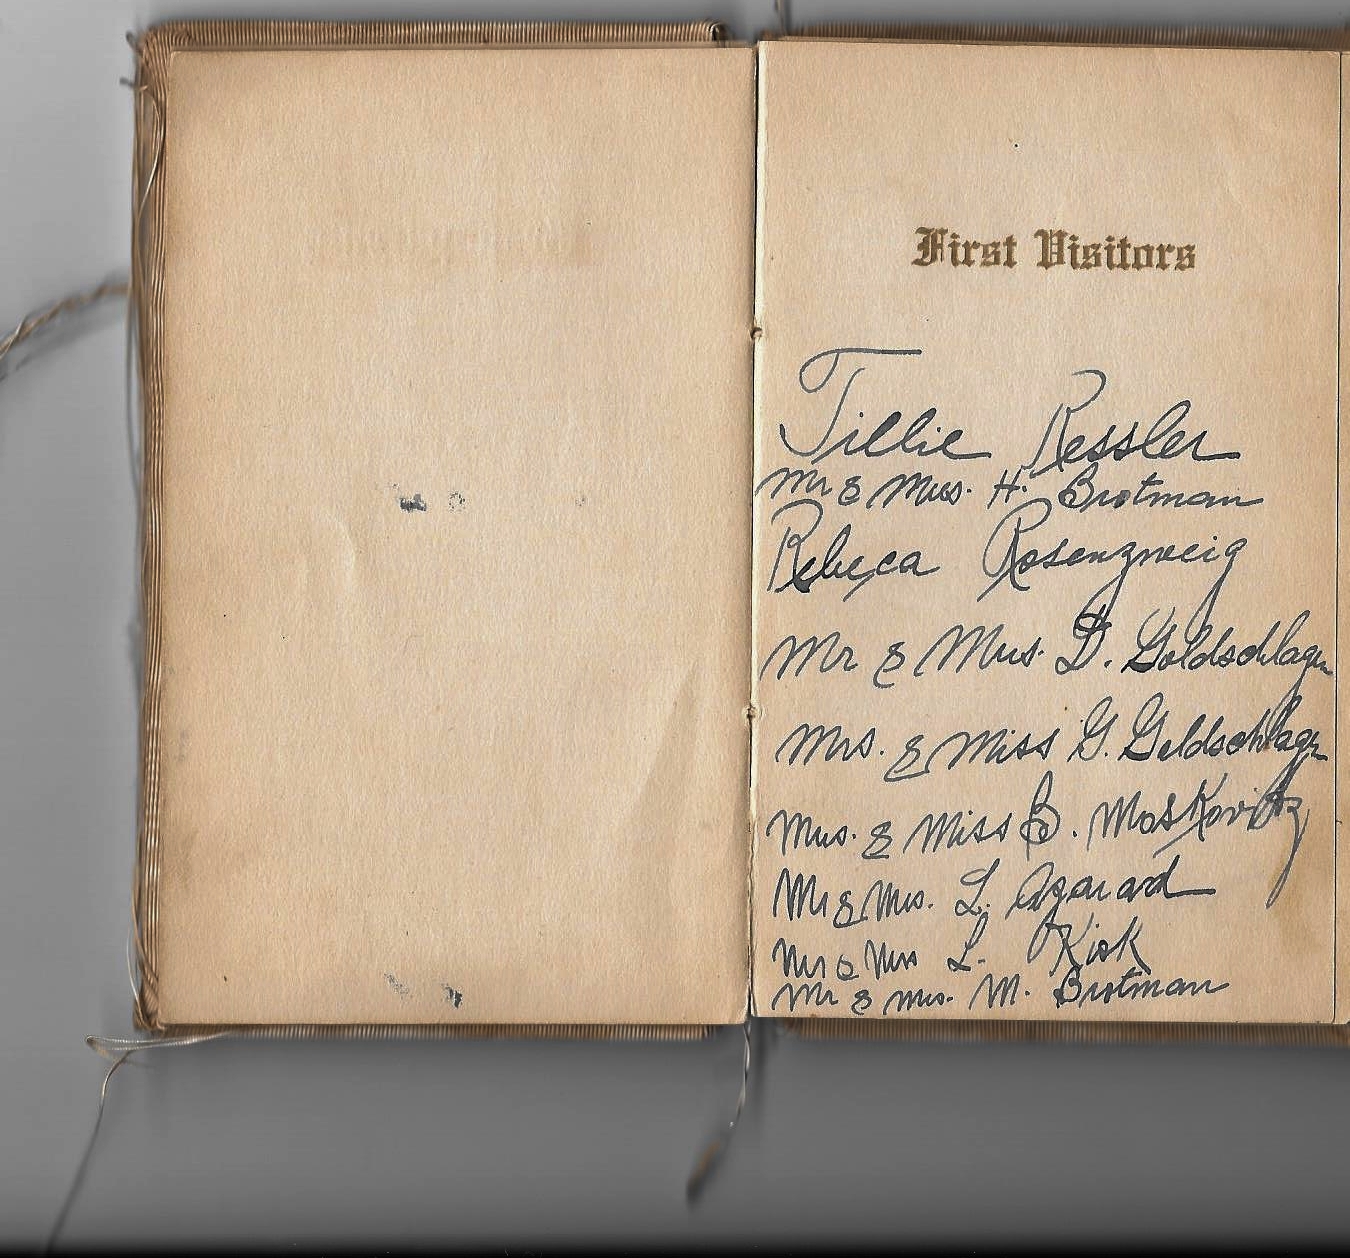 First Visitors
Tillie Ressler
Mr & Mrs. H. Brotman
Rebeca Rosenzweig
Mr & Mrs. D. Goldschlager
Mrs. & Miss G. Goldschlager
Mrs. & Miss B. Moskovitz
Mr & Mrs. L.
Mr & Mrs L.
Mr & Mrs. M. Brotman